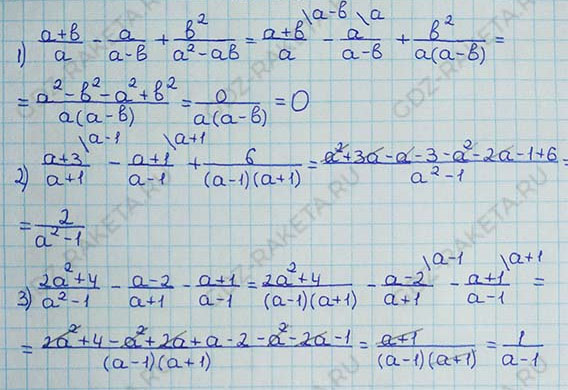 1) (a+b)/a \a-b - a/(a-b) \a + b²/(a²-ab) = (a+b)/a \a-b - a/(a-b) \a + b²/(a(a-b)) =
= (a²-b²-a²+b²)/(a(a-b)) = 0/(a(a-b)) = 0
2) (a+3)/(a+1) \a-1 - (a+1)/(a-1) \a+1 + 6/((a-1)(a+1)) = (a²+3a-a-3-a²-2a-1+6)/(a²-1) =
= 2/(a²-1)
3) (2a²+4)/(a²-1) - (a-2)/(a+1) - (a+1)/(a-1) = (2a²+4)/((a-1)(a+1)) - (a-2)/(a+1) \a-1 - (a+1)/(a-1) \a+1 =
= (2a²+4-a²+2a+a-2-a²-2a-1)/((a-1)(a+1)) = (a+1)/((a-1)(a+1)) = 1/(a-1)
GDZ-RAKETA.RU